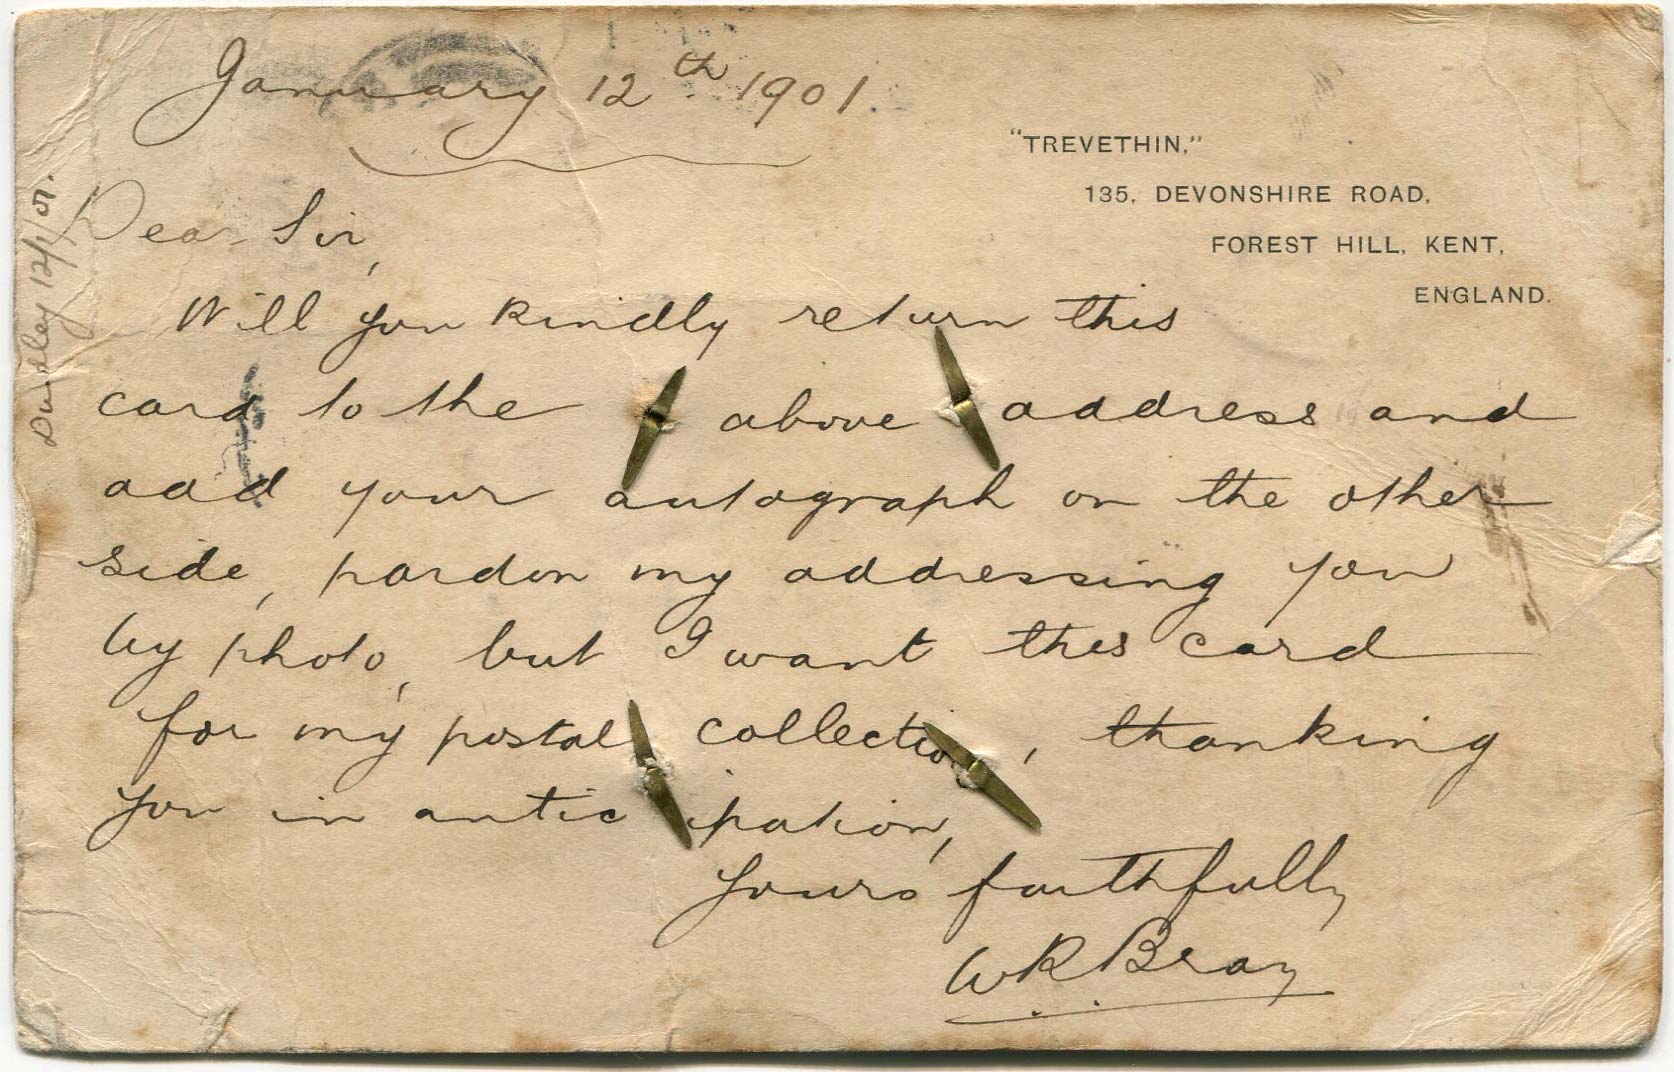 January 12th 1901.
"TREVETHIN,"
135, DEVONSHIRE ROAD,
FOREST HILL, KENT,
ENGLAND.
Dear Sir,
Will you kindly return this
card to the above address and
add your autograph on the other
side, pardon my addressing you
by photo, but I want this card
for my postal collection, thanking
you in anticipation,
Yours faithfully
WR Bray
Dudley 12/1/01.